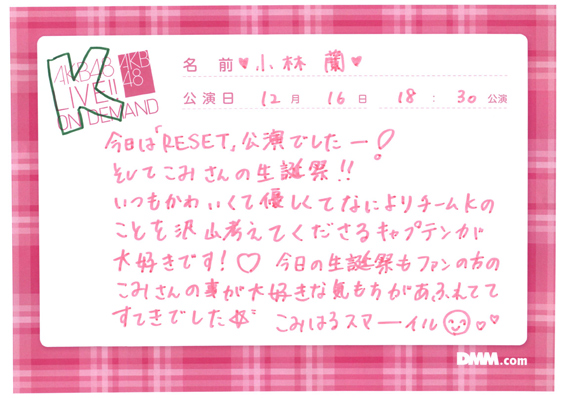 AKB48
LIVE!!
ON DEMAND
K
AKB
48
名 前 ♥ 小林 蘭 ♥
公演日 12月 16日 18 : 30 公演
今日は「RESET」公演でしたー!
そしてこみさんの生誕祭!!
いつもかわいくて優しくてなによりチームKの
ことを沢山考えてくださるキャプテンが
大好きです!♡ 今日の生誕祭もファンの方の
こみさんの事が大好きな気もちがあふれてて
すてきでした☆ こみはるスマーイル
DMM.com